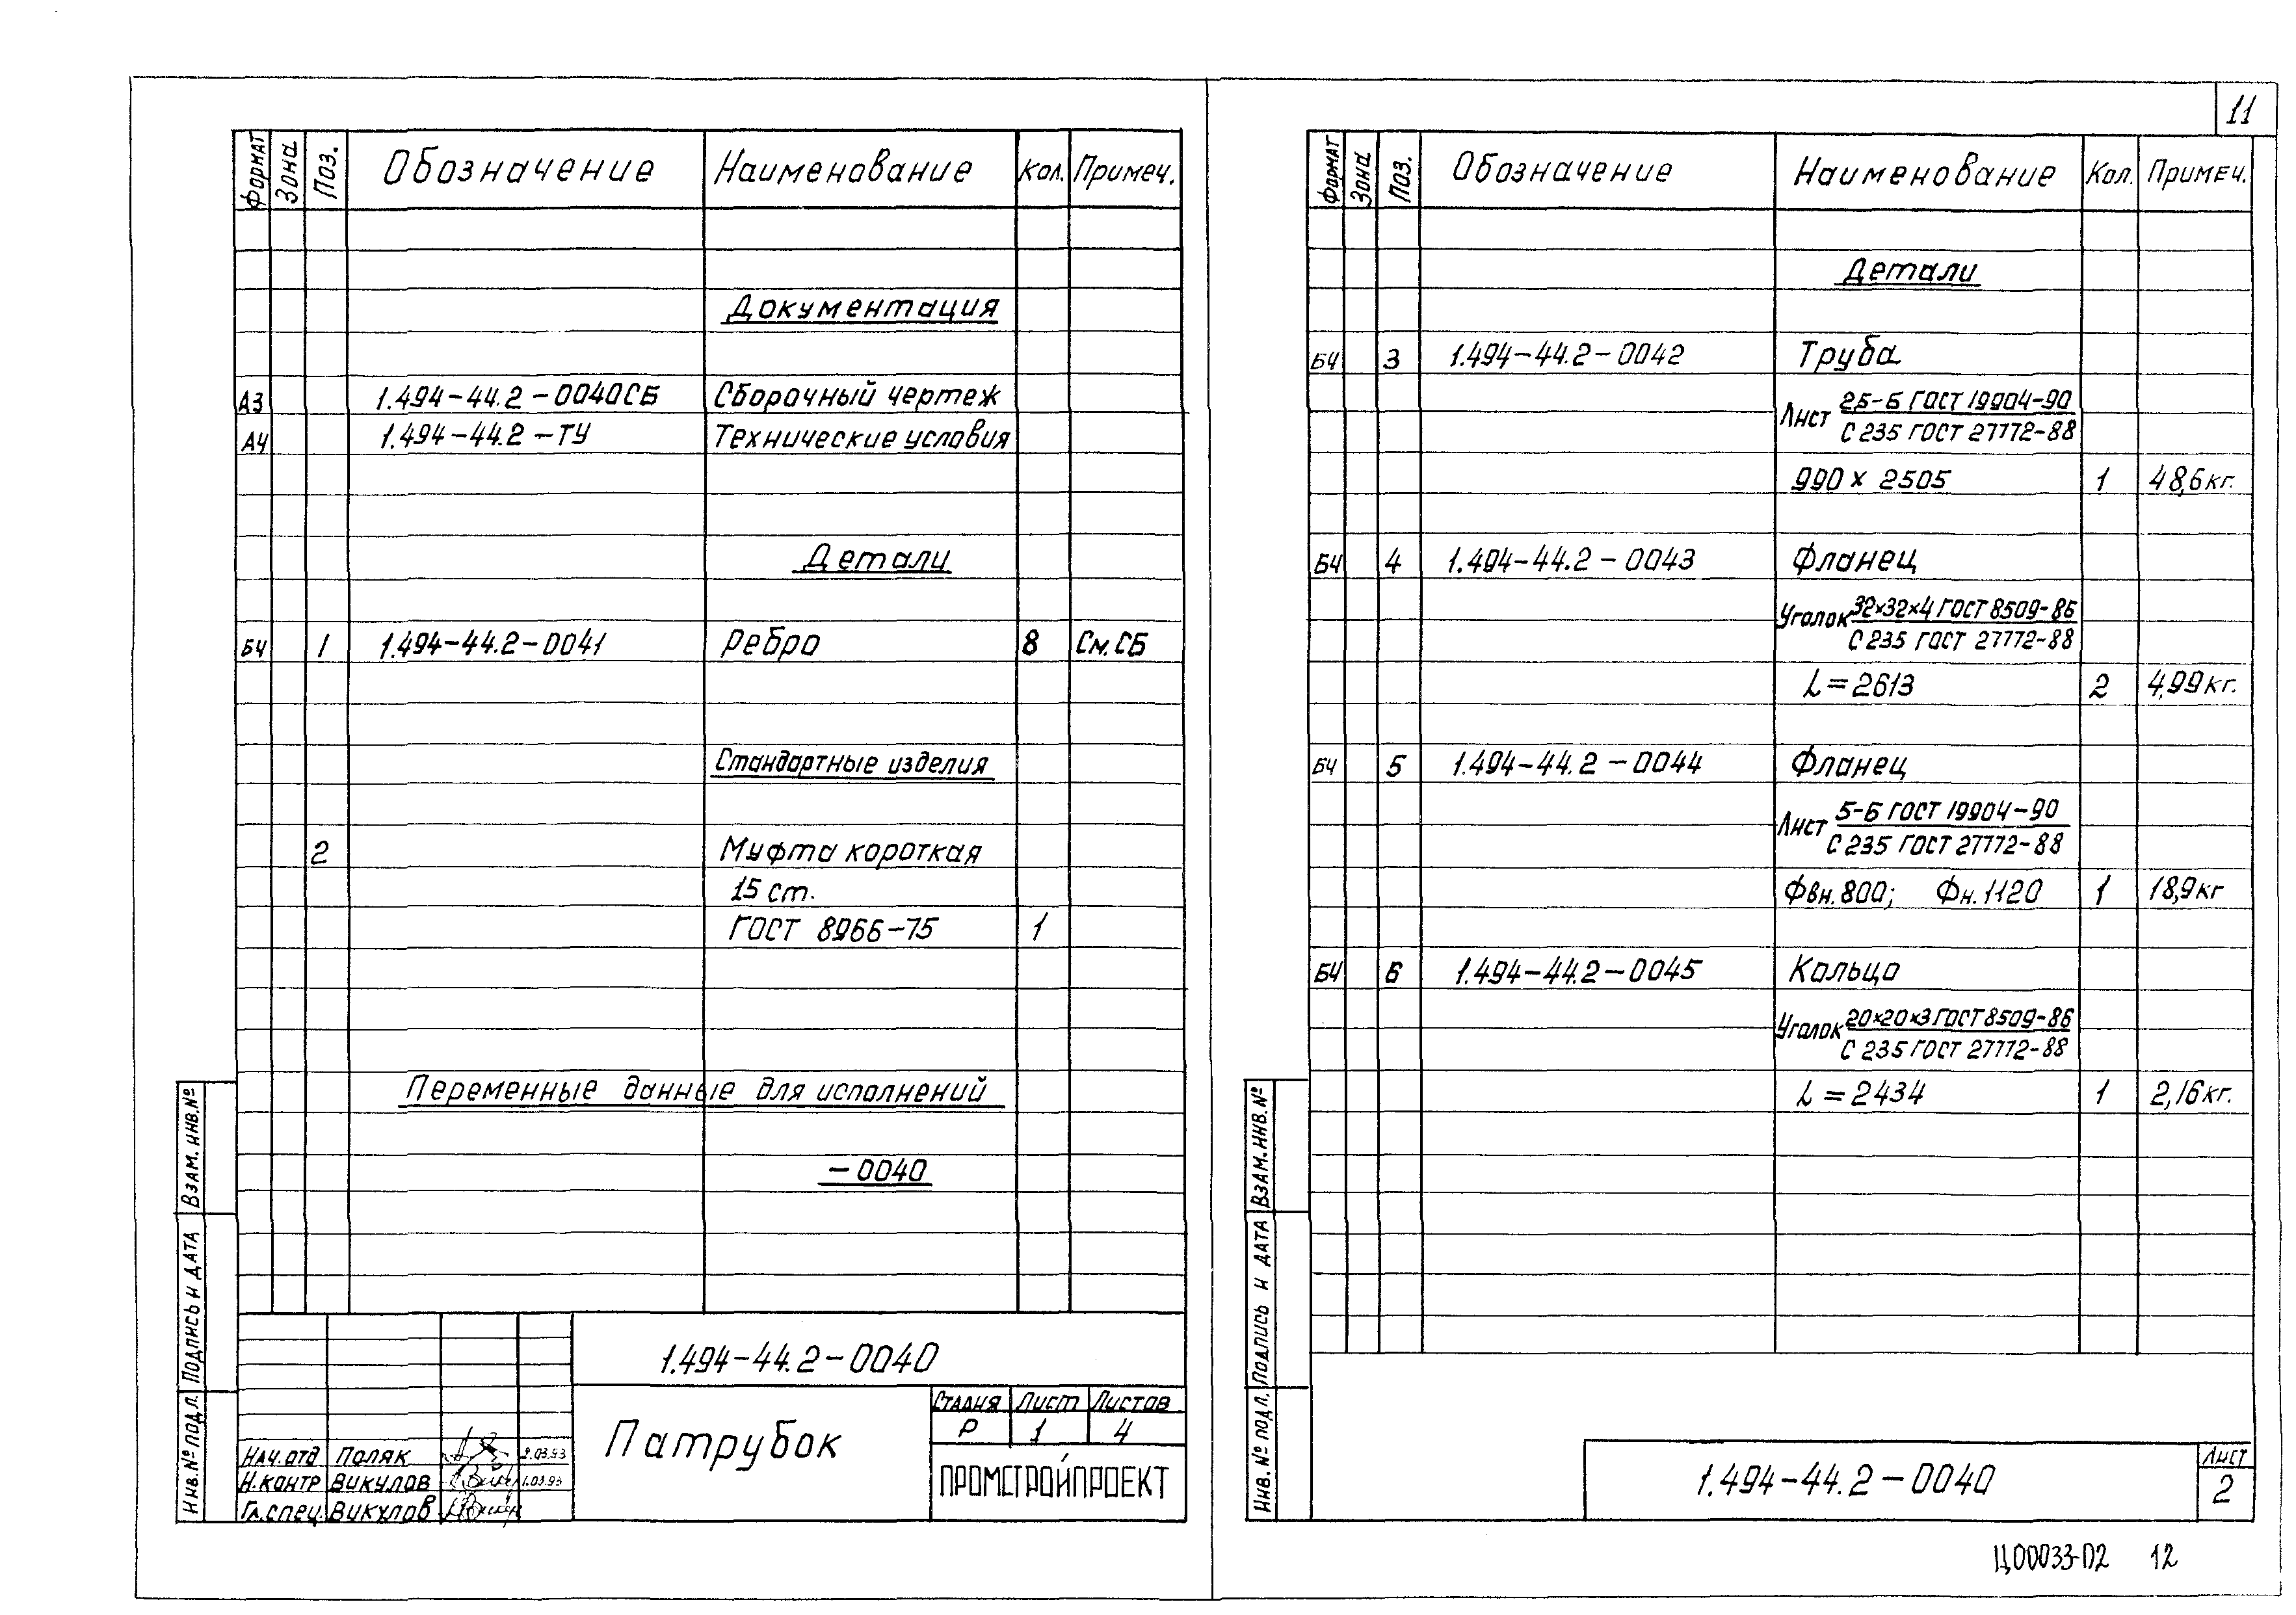 11
Формат Зона Поз. Обозначение Наименование Кол. Примеч.
Документация
А3 1.494-44.2-0040СБ Сборочный чертеж
А4 1.494-44.2-ТУ Технические условия
Детали
БЧ 1 1.494-44.2-0041 Ребро 8 См. СБ
Стандартные изделия
2 Муфта короткая
15 ст.
ГОСТ 8966-75 1
Переменные данные для исполнений
-0040
Взам. инв. №
Подпись и дата
Инв. № подл.
1.494-44.2-0040
Патрубок
Стадия Лист Листов
Р 1 4
ПРОМСТРОЙПРОЕКТ
Нач. отд Поляк 2.03.93
Н. контр Викулов 1.03.93
Гл. спец. Викулов
Формат Зона Поз. Обозначение Наименование Кол. Примеч.
Детали
БЧ 3 1.494-44.2-0042 Труба
Лист 2,5-Б ГОСТ 19904-90
С 235 ГОСТ 27772-88
990 х 2505 1 48,6 кг.
БЧ 4 1.494-44.2-0043 Фланец
Уголок 32×32×4 ГОСТ 8509-86
С 235 ГОСТ 27772-88
L=2613 2 4,99 кг.
БЧ 5 1.494-44.2-0044 Фланец
Лист 5-Б ГОСТ 19904-90
С 235 ГОСТ 27772-88
Фвн. 800; Фн. 1120 1 18,9 кг
БЧ 6 1.494-44.2-0045 Кольцо
Уголок 20×20×3 ГОСТ 8509-86
С 235 ГОСТ 27772-88
L=2434 1 2,16 кг.
Взам. инв. №
Подпись и дата
Инв. № подл.
1.494-44.2-0040
Лист
2
Ц00033-02 12